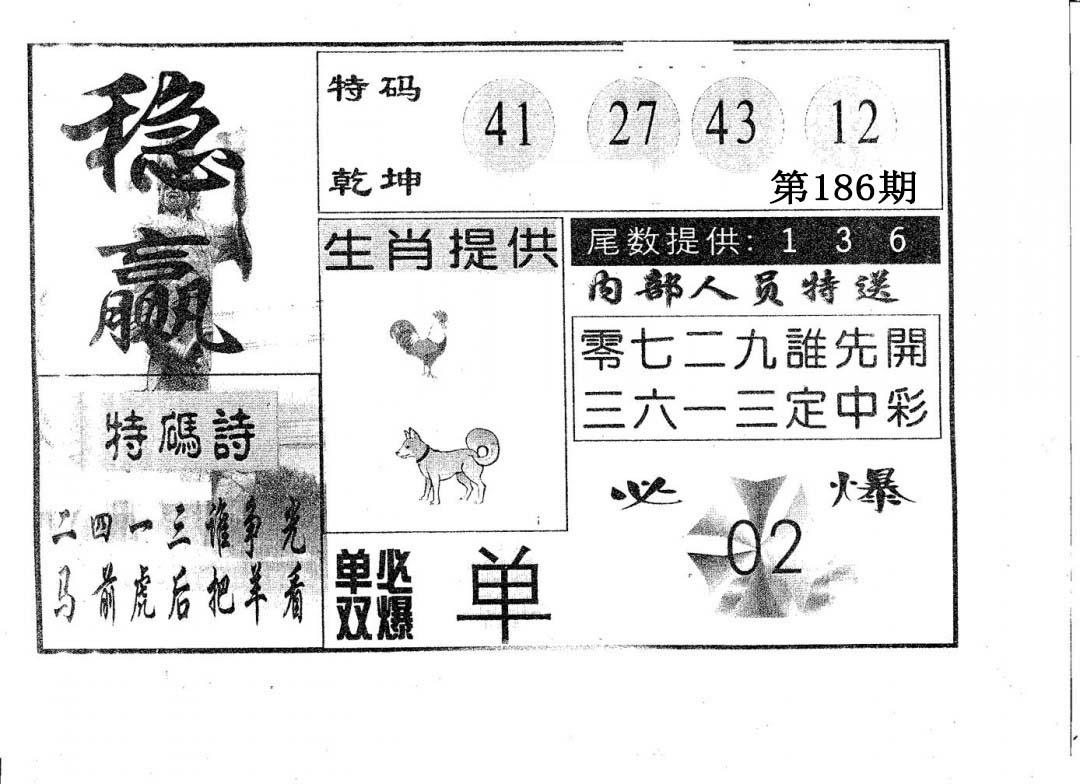 稳赢
特码 41 27 43 12
乾坤
第186期
生肖提供
尾数提供: 1 3 6
内部人员特送
零七二九誰先開
三六一三定中彩
特碼詩
二四一三谁争光
马前虎后把羊看
单双必爆 单
必爆
02